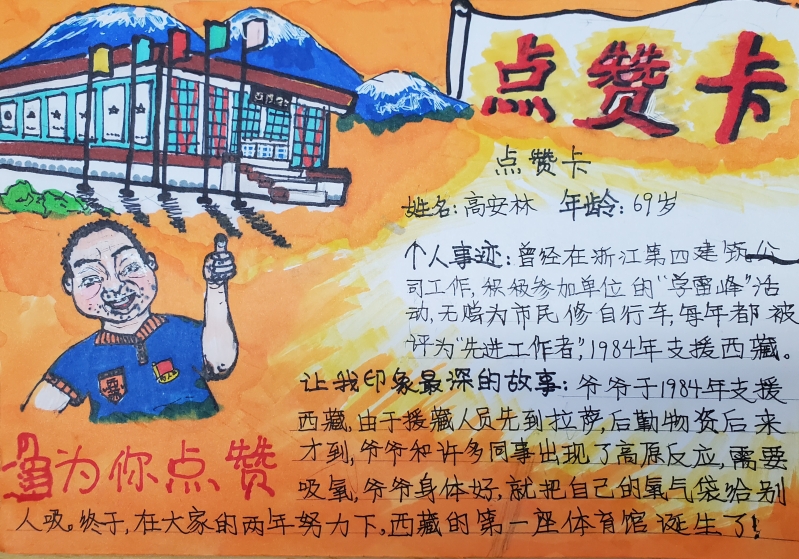 点赞卡
点赞卡
姓名:高安林 年龄:69岁
个人事迹:曾经在浙江第四建筑公
司工作,积极参加单位的“学雷锋”活
动,无赔为市民修自行车,每年都被
评为“先进工作者”,1984年支援西藏。
让我印象最深的故事:爷爷于1984年支援
西藏,由于援藏人员先到拉萨,后勤物资后来
才到,爷爷和许多同事出现了高原反应,需要
吸氧,爷爷身体好,就把自己的氧气袋给别
人吸。终于,在大家的两年努力下,西藏的第一座体育馆诞生了!
为你点赞